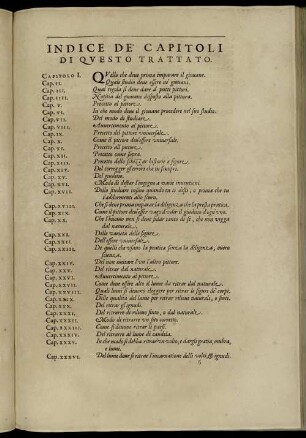 INDICE DE' CAPITOLI
DI QVESTO TRATTATO.
CAPITOLO I. QVello che deue prima imparare il giouane.
Cap. II. Quale studio deue essere ne' giouani.
Cap. III. Qual regola si deue dare a' putti pittori.
Cap. IIII. Notitia del giouane disposto alla pittura.
Cap. V. Precetto al pittore.
Cap. VI. In che modo deue il giouane procedere nel suo studio.
Cap. VII. Del modo di studiare.
Cap. VIII. Auuertimento al pittore.
Cap. IX. Precetto del pittore vniuersale.
Cap. X. Come il pittore deue essere vniuersale.
Cap. XI. Precetto al pittore.
Cap. XII. Precetto come sopra.
Cap. XIII. Precetto dello schizzar historie e figure.
Cap. XIV. Del corregger gl'errori che tu scuopri.
Cap. XV. Del giuditio.
Cap. XVI. Modo di destar l'ingegno a varie inuentioni.
Cap. XVII. Dello studiare insino quando tu ti desti, o prima che tu
t'addormenti allo scuro.
Cap. XVIII. Che si deue prima imparar la diligenza che la presta pratica.
Cap. XIX. Come il pittore deue esser vago d'vdire il giuditio d'ogn'vno.
Cap. XX. Che l'huomo non si deue fidar tanto di se, che non vegga
dal naturale.
Cap. XXI. Delle varietà delle figure.
Cap. XXII. Dell'essere vniuersale.
Cap. XXIII. De quelli che vsano la pratica senza la diligenza, ouero
scienza.
Cap. XXIV. Del non imitare l'vn l'altro pittore.
Cap. XXV. Del ritrar dal naturale.
Cap. XXVI. Auuertimento al pittore.
Cap. XXVII. Come deue essere alto il lume da ritrar dal naturale.
Cap. XXVIII. Quali lumi si deuono eleggere per ritrar le figure de' corpi.
Cap. XXIX. Delle qualità del lume per ritrar rilieui naturali, o finti.
Cap. XXX. Del ritrar gl'ignudi.
Cap. XXXI. Del ritrarre di rilieuo finto, o dal naturale.
Cap. XXXII. Modo di ritrarre vn sito corretto.
Cap. XXXIII. Come si deuono ritrar li paesi.
Cap. XXXIV. Del ritrarre al lume di candela.
Cap. XXXV. In che modo si debba ritrar vn volto, e dargli gratia, ombra,
e lumi.
Cap. XXXVI. Del lume doue si ritrae l'incarnatione delli volti, & ignudi.